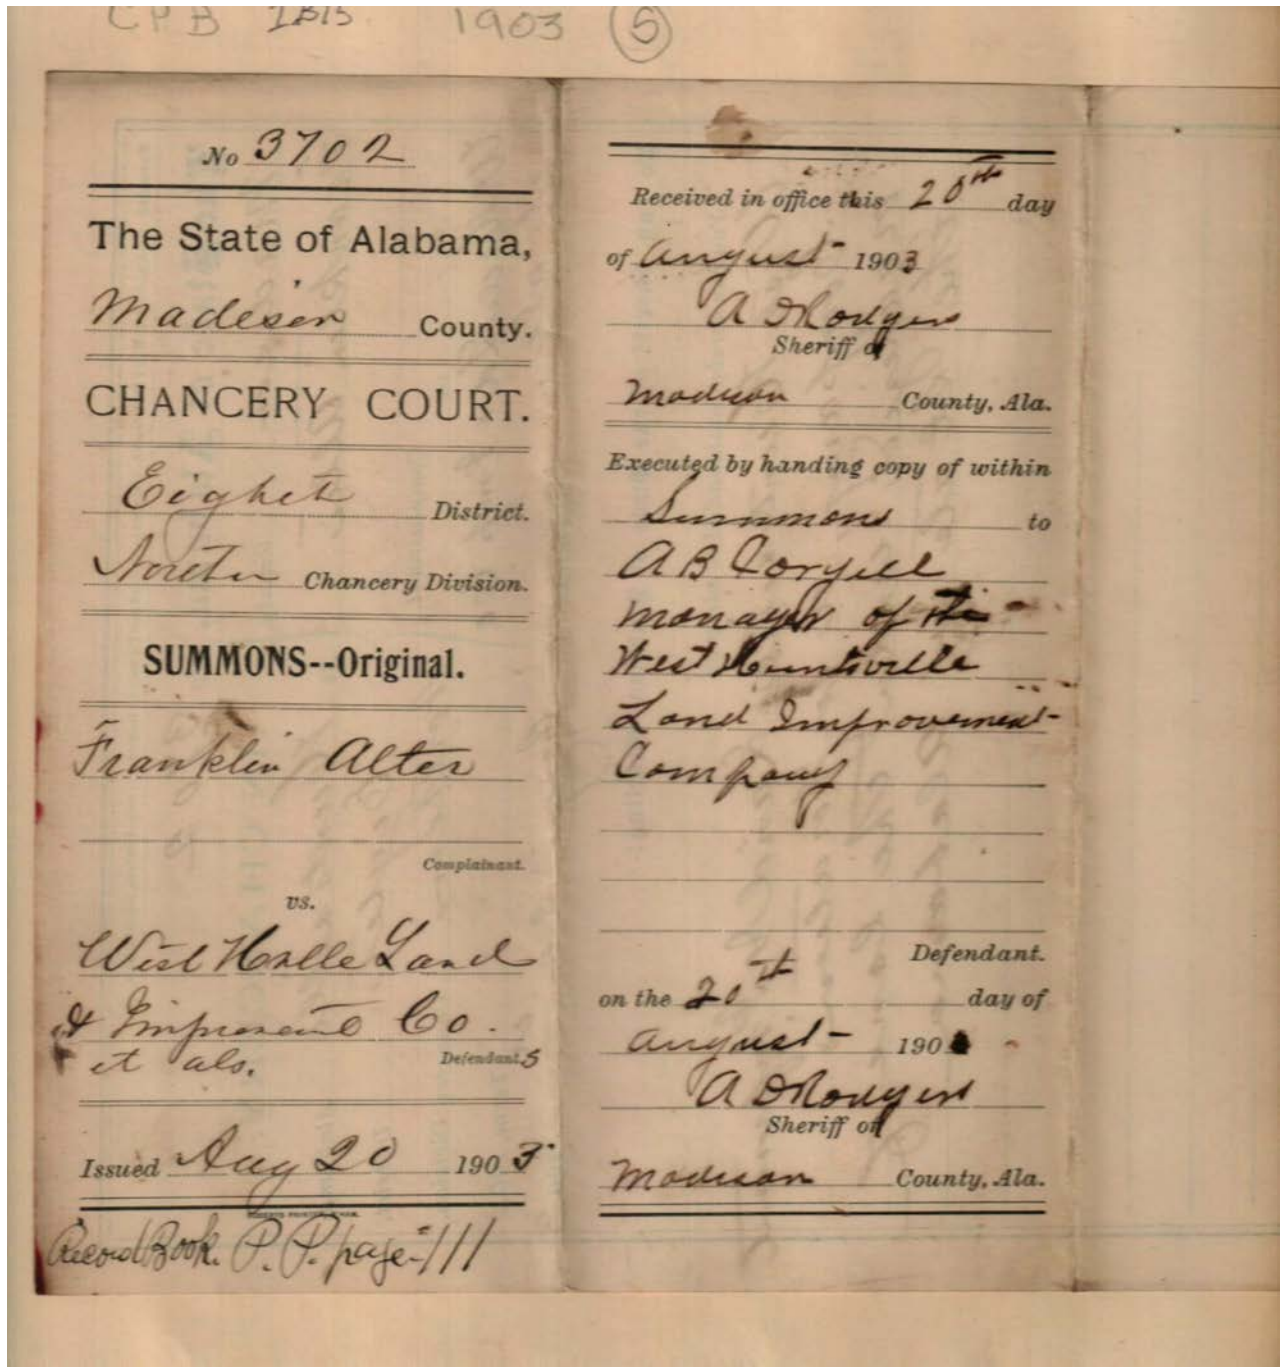 CPB 1903 5
No 3702
The State of Alabama,
Madison County.
CHANCERY COURT.
Eighet District.
North Chancery Division.
SUMMONS--Original.
Franklin Alter
Complainant.
vs.
West Hville Land
& Improvemt Co.
et als. Defendants
Issued Aug 20 1903
Record Book. P. P. page 111
Received in office this 20th day
of August 1903
A D Rodgers
Sheriff of
Madison County, Ala.
Executed by handing copy of within
Summons to
A B Coryell
Manager of the
West Huntsville
Land Improvement
Company
Defendant.
on the 20th day of
August 190
A D Rodgers
Sheriff of
Madison County, Ala.